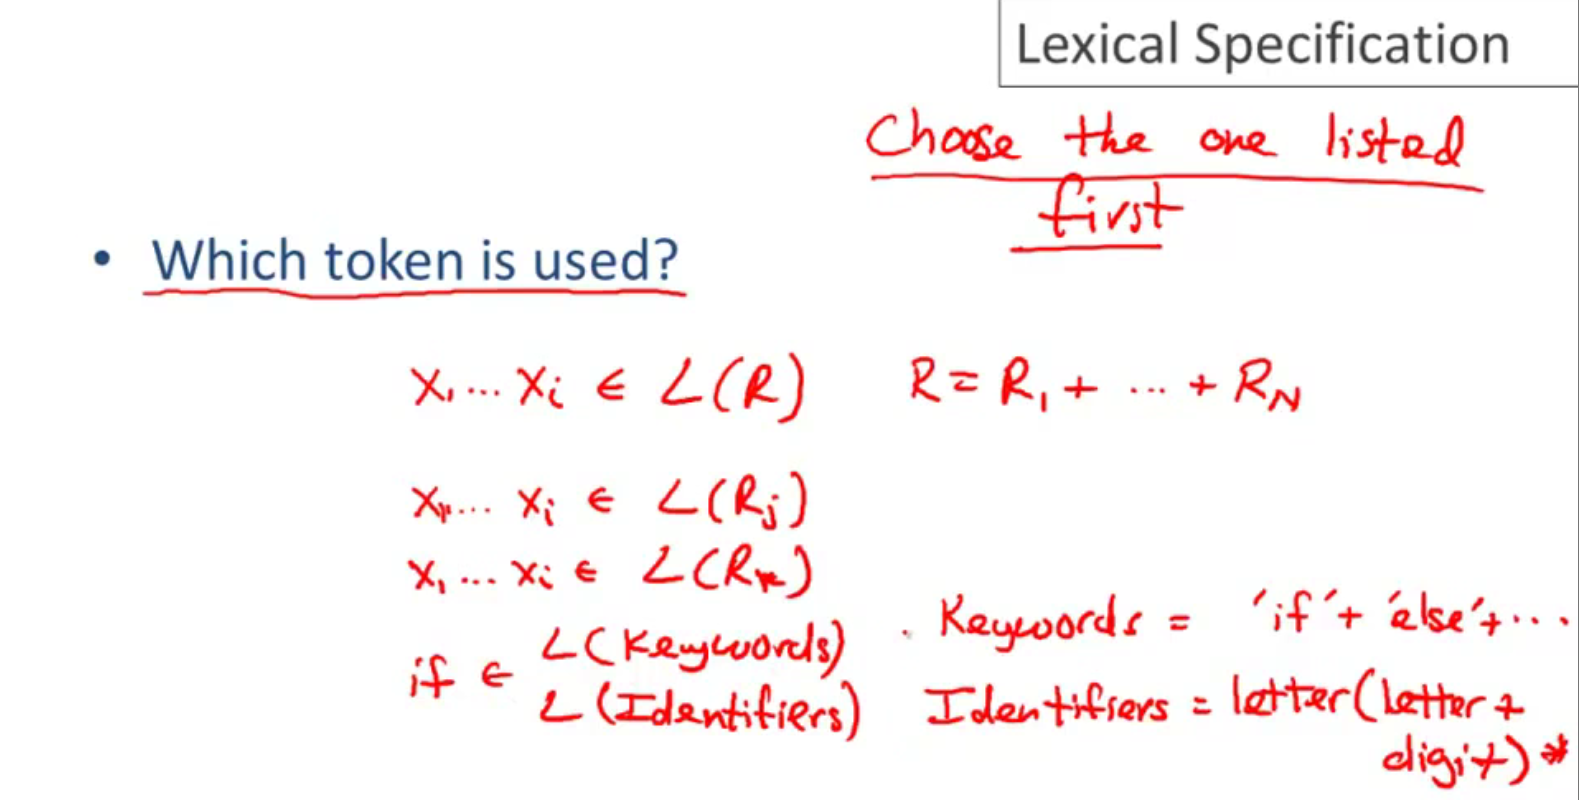 Lexical Specification
Choose the one listed
first
• Which token is used?
x₁... xᵢ ∈ L(R) R = R₁ + ... + R_N
x₁... xᵢ ∈ L(Rⱼ)
x₁ ... xᵢ ∈ L(Rₖ)
if ∈ L(Keywords) . Keywords = 'if' + 'else' + ...
L(Identifiers) Identifiers = letter(letter +
digit)*